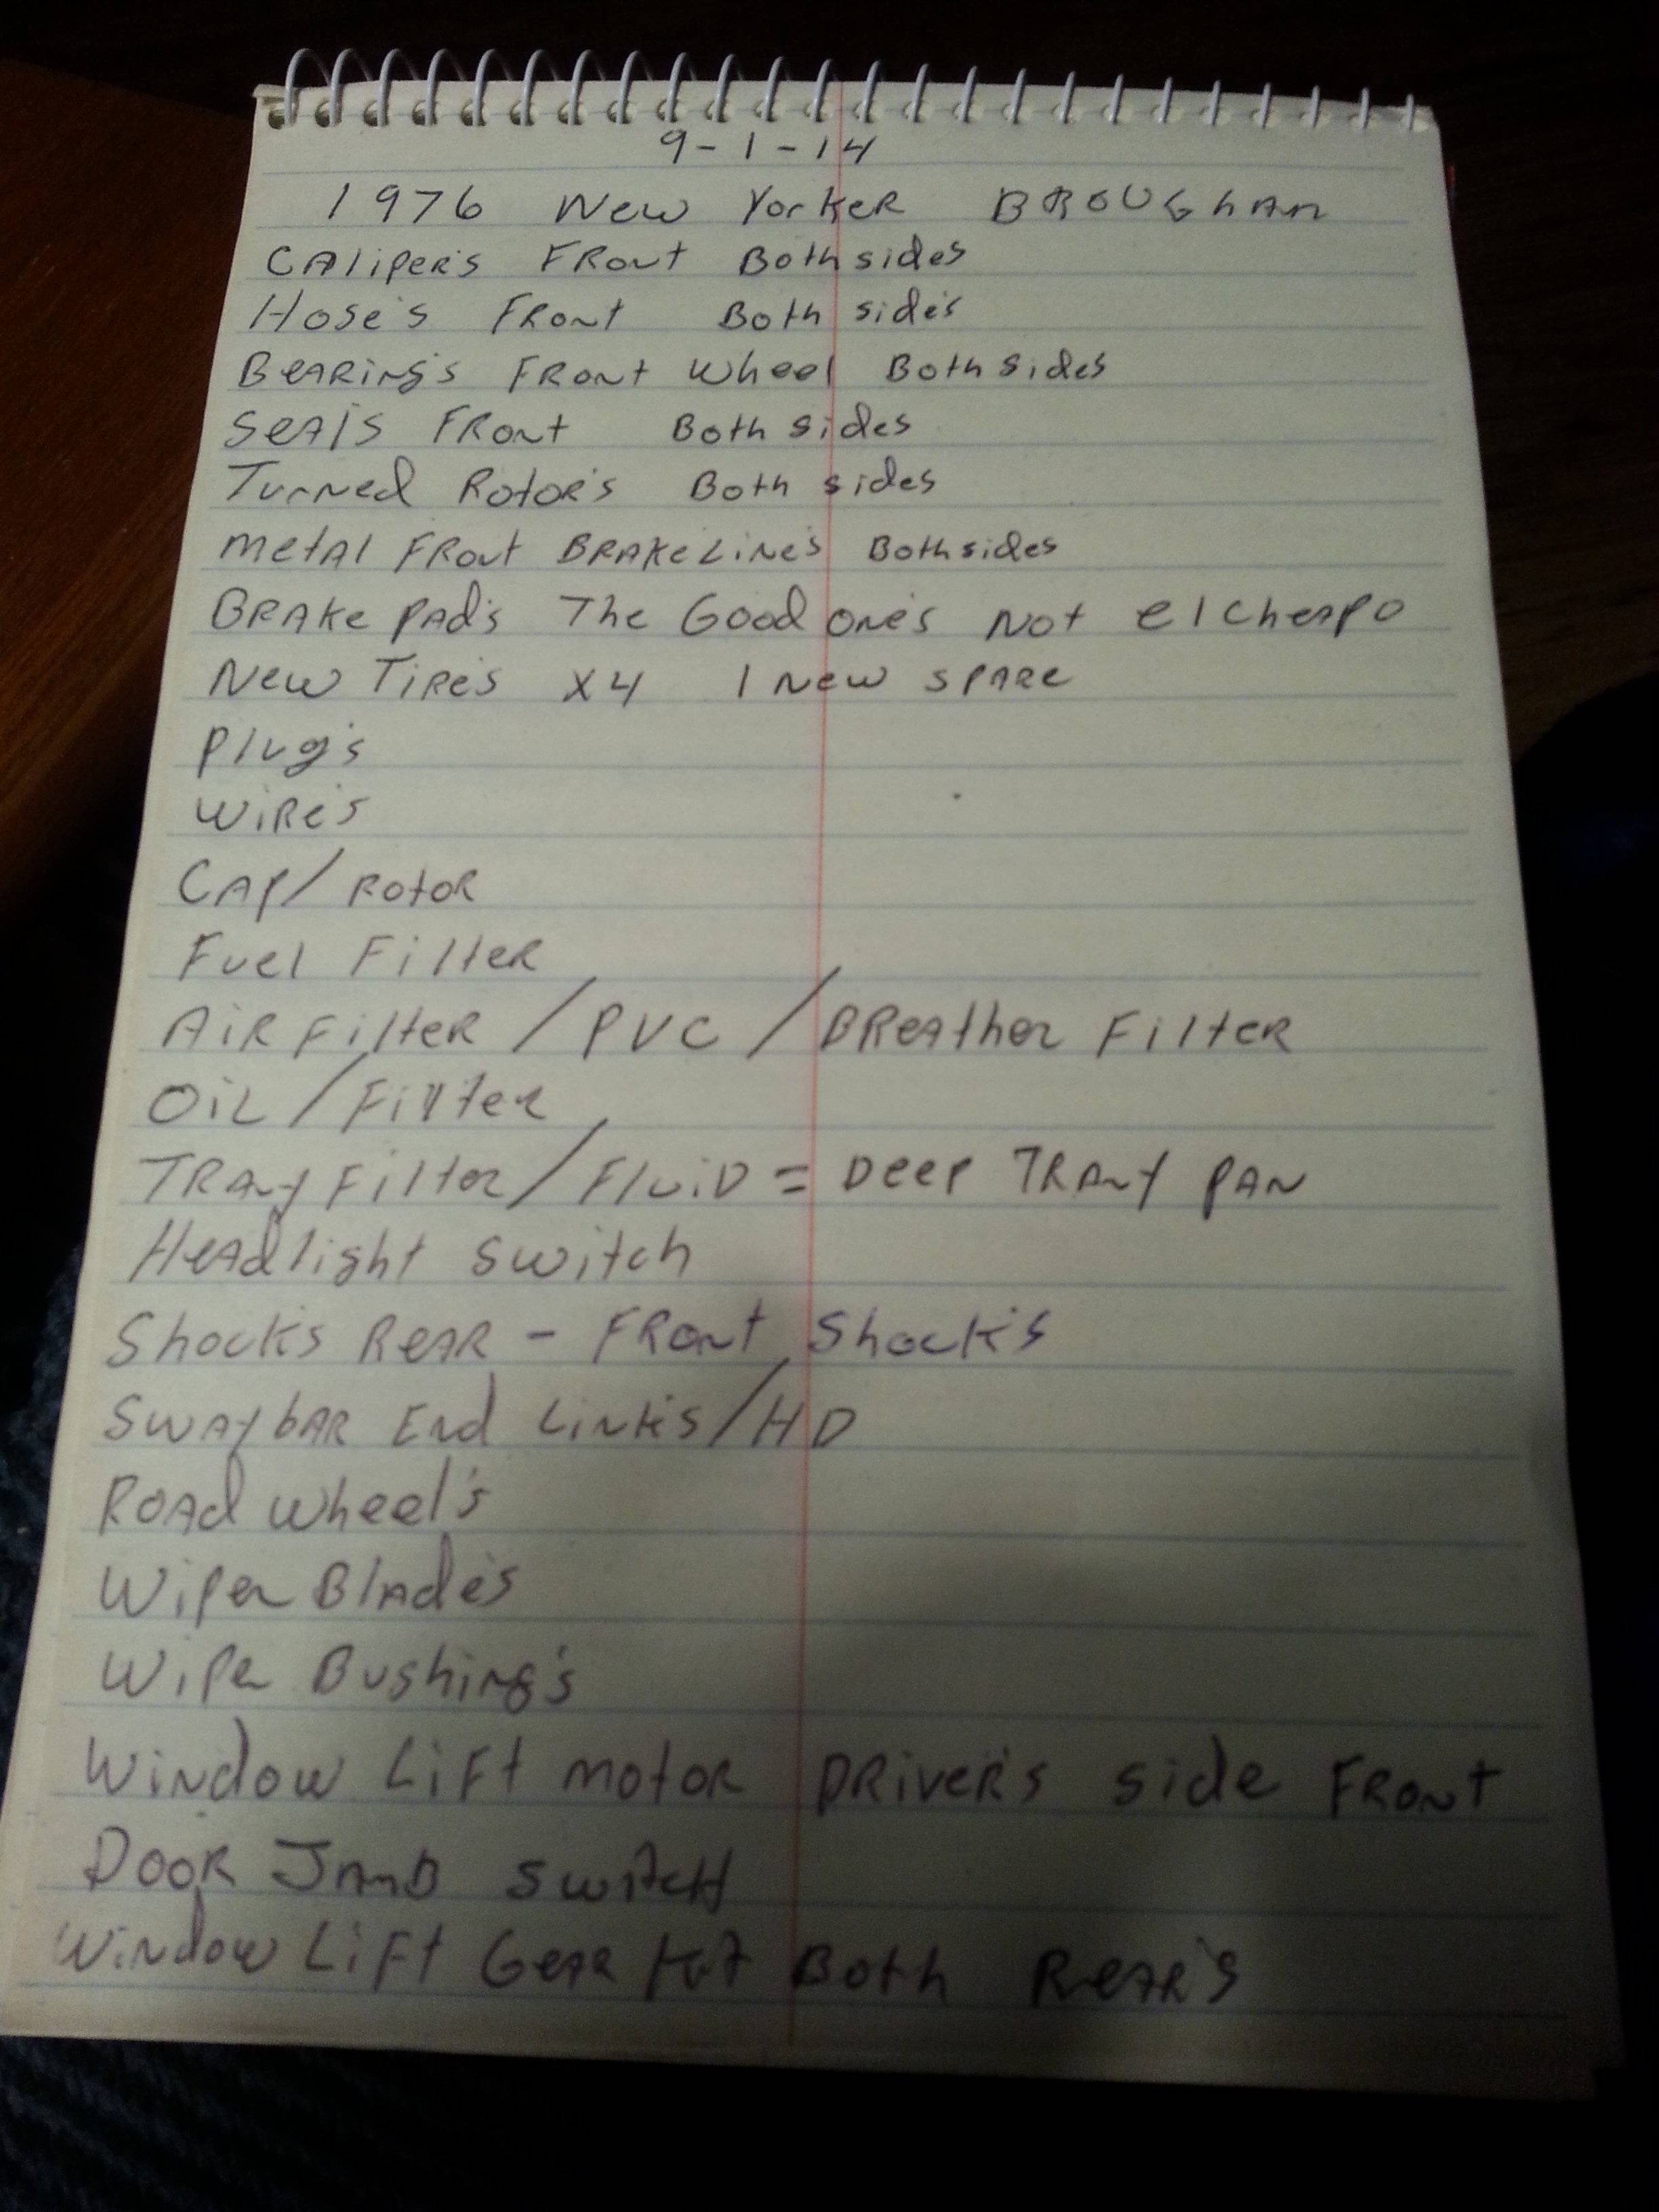 9-1-14
1976 New Yorker BROUGHAM
CAliper's FRont Both sides
Hose's FRont Both side's
BeARing's FRont Wheel Both Sides
SeAls FRont Both sides
Turned Rotor's Both sides
MetAl FRont BRAKe Line's Both sides
BRAKe PAd's The Good one's Not elcheapo
New Tire's X4 1 New spARe
Plug's
WiRe's
CAP/Rotor
Fuel Filter
AiR Filter / PVC / BReather Filter
OiL/Filter
TRany Filter/FluiD = Deep TRany PAN
HeAdlight switch
Shock's ReAR - FRont Shock's
SwAybAR End Link's/HD
ROAd Wheel's
Wiper BlAde's
Wiper Bushing's
Window Lift motoR DRiver's side FRont
DOOR JAmB switcH
Window Lift GeAR Kit Both ReAR's